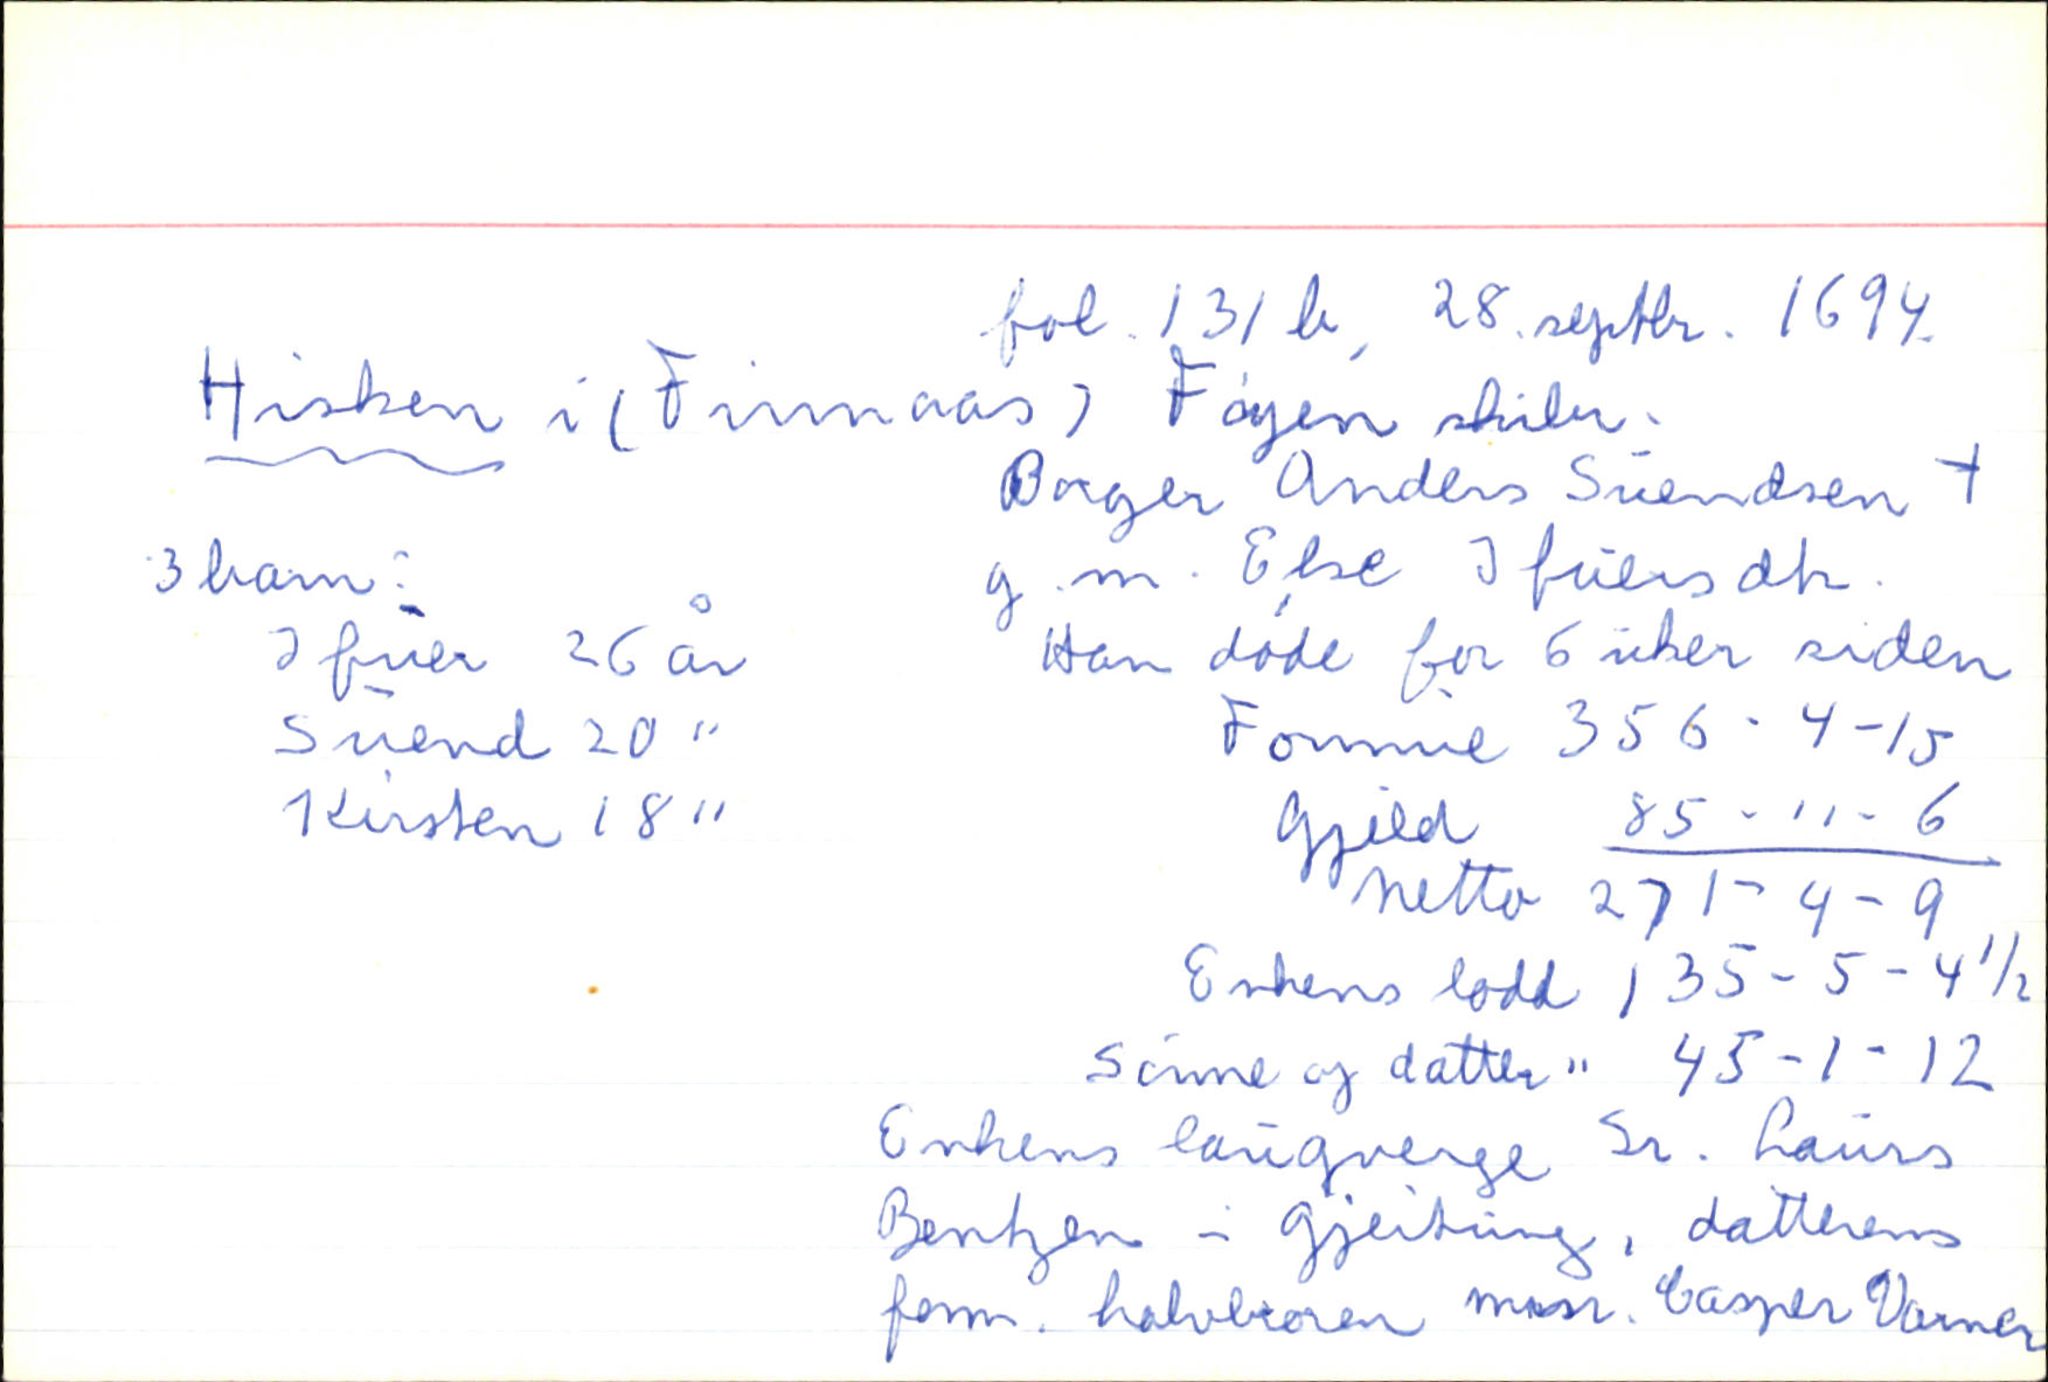 fol. 131 b, 28. septbr. 1694.
Hisken i (Finnaas) Føyen skibr.
Borger Anders Suendsen †
g. m. Else Ifuersdtr.
Han døde for 6 uker siden
3 barn:
Ifuer 26 år
Suend 20 "
Kirsten 18 "
Formue 356 - 4 - 15
Gjeld 85 - " - 6
Netto 271 - 4 - 9
Enkens lodd 135 - 5 - 4 1/2
Sønne og datter " 45 - 1 - 12
Enkens laugverge Sr. Laurs
Bentzen i Gjeitung, datterens
form. halvbroren monsr. Casper Varner